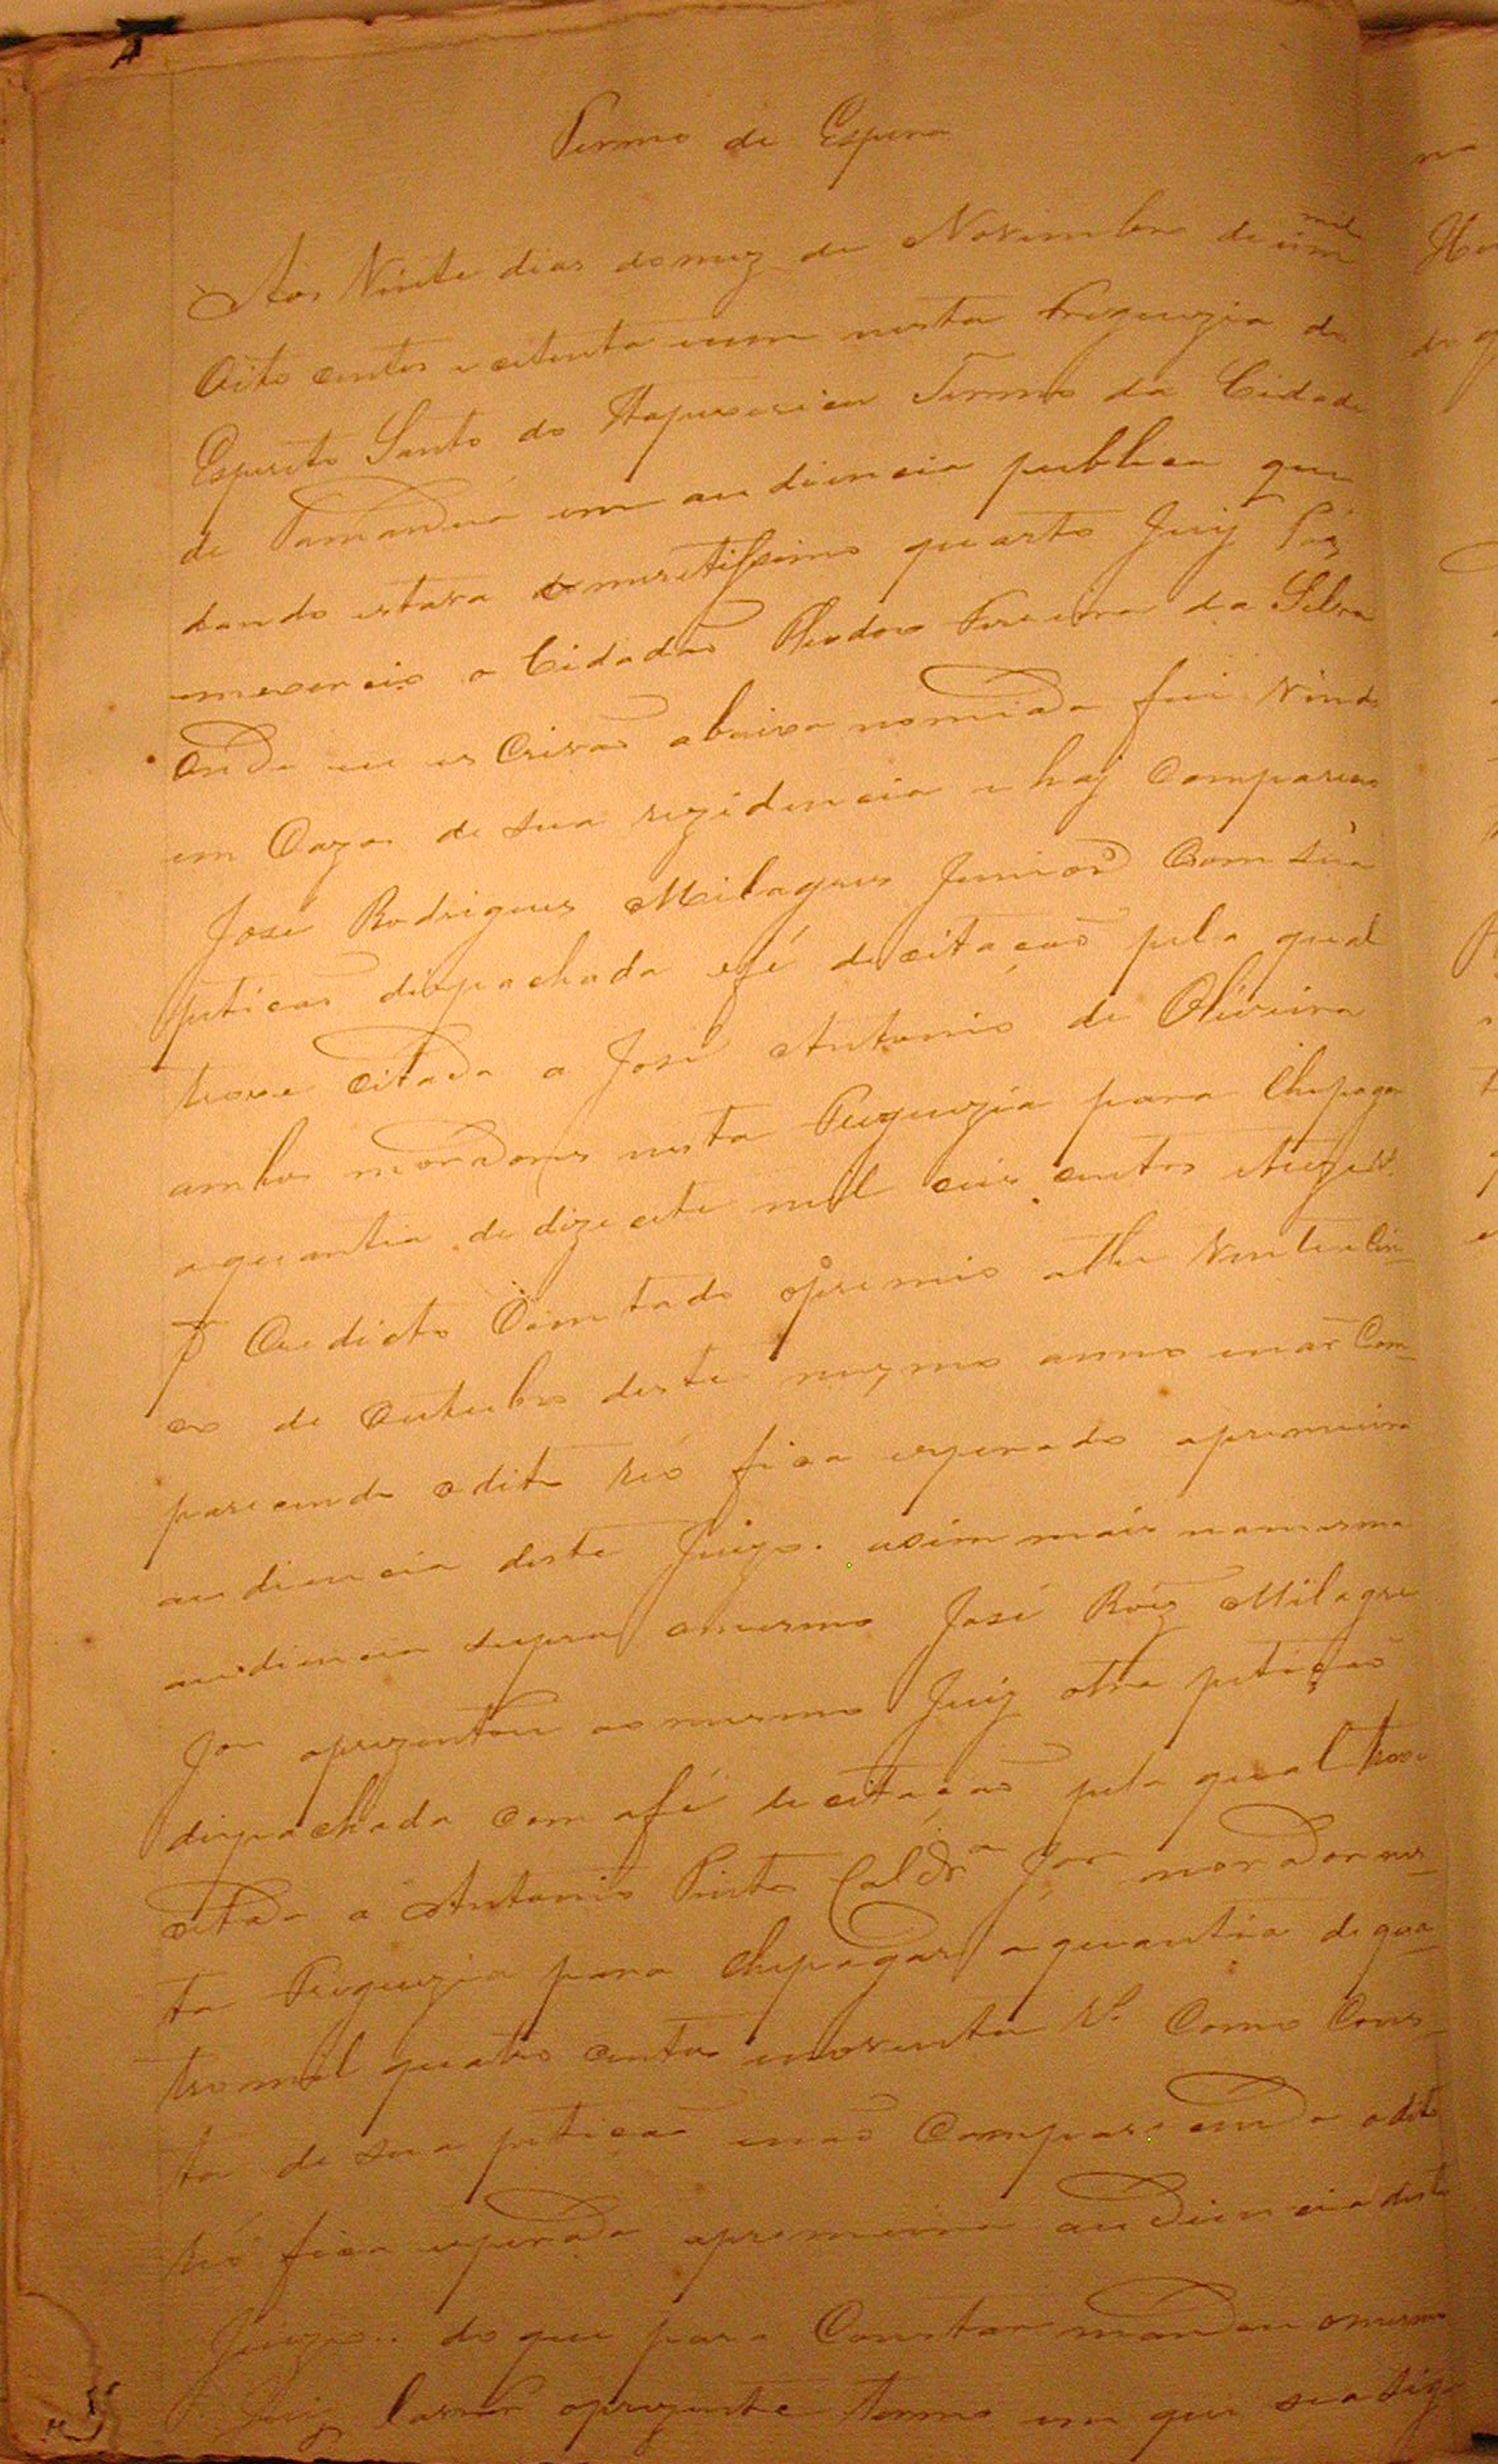 Termo de Espera
Aos Vinte dias do mez de Novembro de mil
Oito centos e setenta e um nesta Freguezia do
Espirito Santo do Itapecerica Termo da Cidade
de Tamanduá em audiencia publica que
dando estava o meretissimo quarto Juiz Paz
em exercicio o Cidadão Theodoro Pereira da Silva
onde eu escrivão abaixo nomiado fui Vindo
em Caza de sua rezidencia e haj Compareceo
José Rodrigues Milagres Junior Com sua
peticão dispachada e fé de citacão pela qual
troxe Citado a José Antonio de Oliveira
ambos moradores nesta Freguezia para lhe pagar
a quantia de dizecete mil ceis centos e
Credicto Contado o premio athe Vinte e Cin-
co de Outubro deste mezmo anno e não Com-
parecendo o dito reo fica esperado a premeira
audiencia deste Juizo. asim mais na mesma
audiencia supra o mesmo José Roiz Milagre
Jor aprezentou ao mesmo Juiz otra petição
dispachada com a fé de citacão pela qual troxe
citado a Antonio Pinto Caldra Jor morador nes-
ta Freguezia para lhe pagar a quantia de qua-
tro mil quatro centos e noventa rs. Como Cons-
ta de sua peticão e não Comparecendo o dito
reo fica esperado a premeira audiencia deste
Juizo.. do que para Constar mandou o mesmo
Juiz lavrar o prezente termo em que se asigna